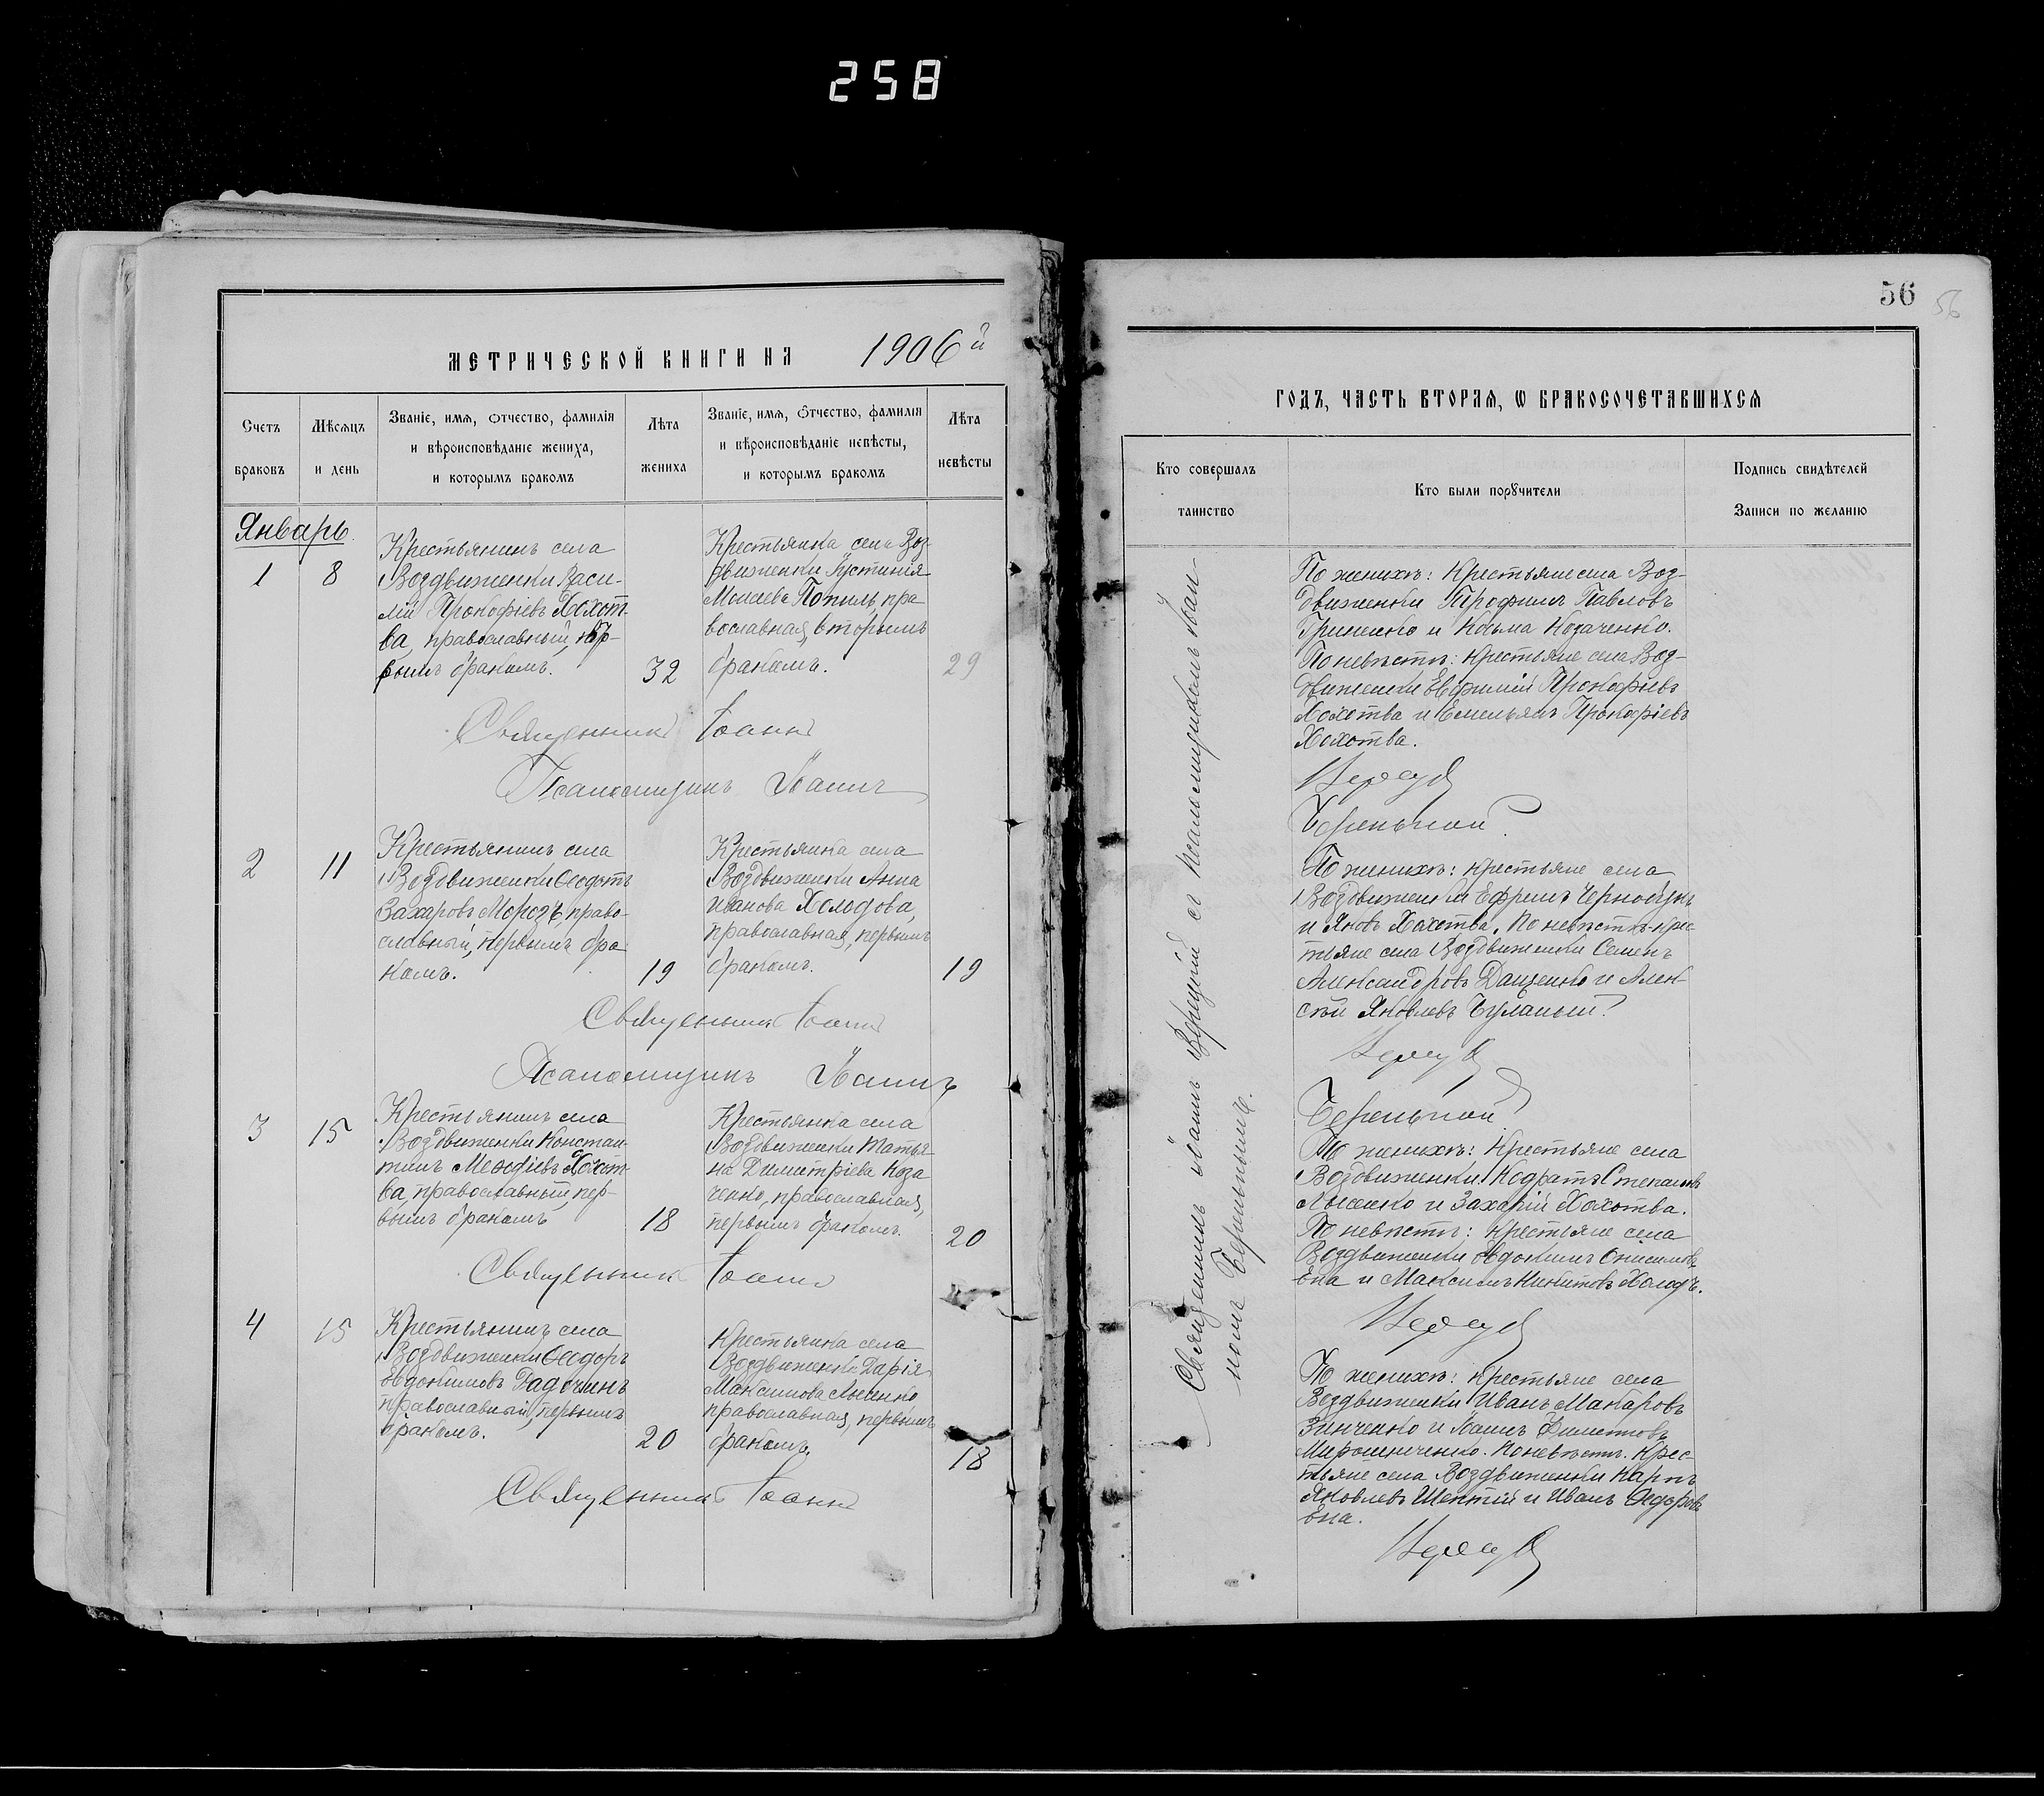 258
МЕТРИЧЕСКОЙ КНИГИ НА 1906й
Счетъ браковъ
Мѣсяцъ и день
Званіе, имя, отчество, фамилія
и вѣроисповѣданіе жениха,
и которымъ бракомъ
Лѣта жениха
Званіе, имя, отчество, фамилія
и вѣроисповѣданіе невѣсты,
и которымъ бракомъ
Лѣта невѣсты
Январь.
1
8
Крестьянинъ села
Воздвиженки Васи-
лій Прокофіевъ Хохот-
ва, православный, пер-
вымъ бракомъ.
32
Крестьянка села Воз-
движенки Іустинія
Моисеева Попиль, пра
вославная, вторымъ
бракомъ.
29
Священникъ Іоаннъ
Псаломщикъ Іоаннъ
2
11
Крестьянинъ села
Воздвиженки Ѳеодотъ
Захаровъ Морозъ, право-
славный, первымъ бра
комъ.
19
Крестьянка села
Воздвиженки Анна
Иванова Холодова,
православная, первымъ
бракомъ.
19
Священникъ Іоаннъ
Псаломщикъ Іоаннъ
3
15
Крестьянинъ села
Воздвиженки Констан-
тинъ Меѳодіевъ Хохот-
ва, православный, пер-
вымъ бракомъ
18
Крестьянка села
Воздвиженки Татья-
на Димитріева Коза
ченко, православная,
первымъ бракомъ.
20
Священникъ Іоаннъ
4
15
Крестьянинъ села
Воздвиженки Ѳеодоръ
Евдокимовъ
православный, первымъ
бракомъ.
20
Крестьянка села
Воздвиженки Дарія
Максимова Лысенко
православная, первымъ
бракомъ.
18
Священникъ Іоаннъ
56
56
ГОДЪ, ЧАСТЬ ВТОРАЯ, Ѡ БРАКОСОЧЕТАВШИХСЯ
Кто совершалъ таинство
Кто были порꙋчители
Подпись свидѣтелей
Записи по желанію
Священникъ Іоаннъ Верецкій съ Псаломщикомъ Іоан-
номъ
По женихѣ: Крестьяне села Воз-
движенки Трофимъ Павловъ
Гриненко и Косьма Козаченко.
По невѣстѣ: Крестьяне села Воз-
движенки Евфимій Прокофьевъ
Хохотва и Емельянъ Прокофіевъ
Хохотва.
По женихѣ: крестьяне села
Воздвиженки Ефремъ
и Яковъ Хохотва. По невѣстѣ-крес
тьяне села Воздвиженки Семенъ
Александровъ Даценко и Алек-
сѣй Яковлевъ Буланый.
По женихѣ: Крестьяне села
Воздвиженки Кодратъ Степановъ
Лысенко и Захарій Хохотва.
По невѣстѣ: Крестьяне села
Воздвиженки Евдокимъ
и Максимъ Никитовъ Холодъ.
По женихѣ: Крестьяне села
Воздвиженки Иванъ Макаровъ
Зинченко и Іоаннъ
Мирошниченко. По невѣстѣ. Крес-
тьяне села Воздвиженки Карпъ
Яковлевъ и Иванъ Ѳедоровъ